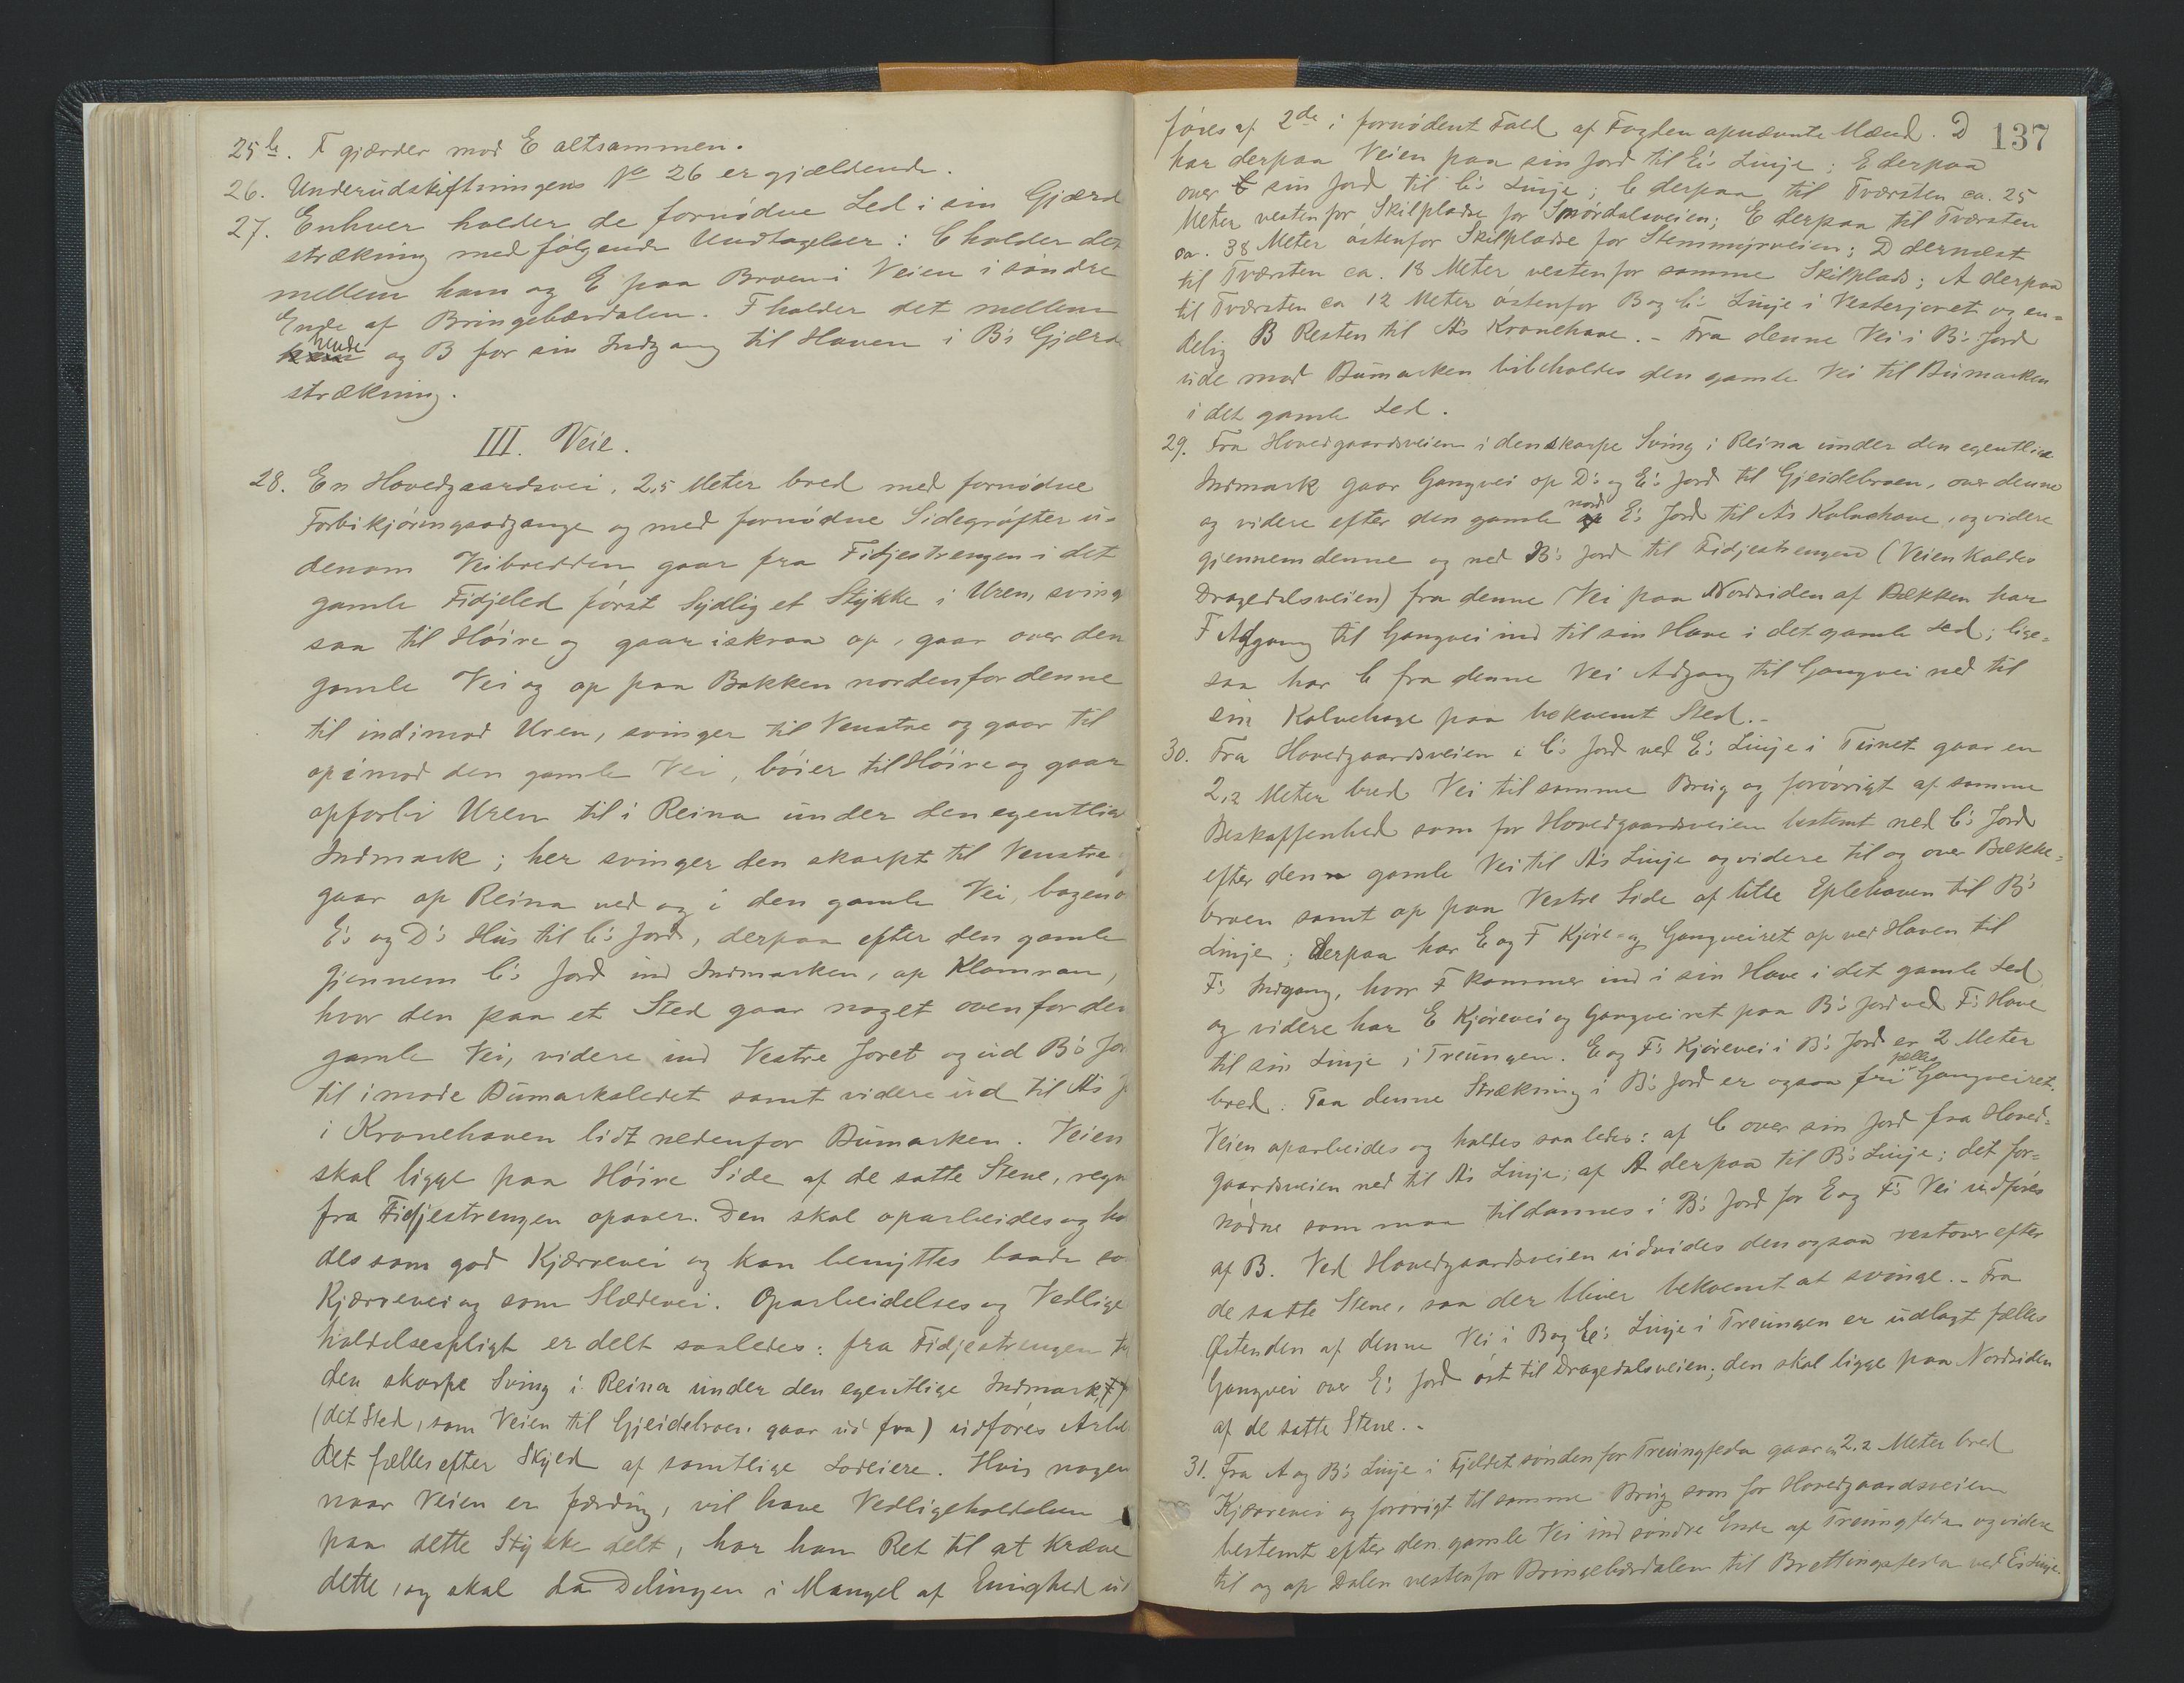 25b. F gjærder mod E altsammen.
26. Underudskiftningens No 26 er gjældende.
27. Enhver holder de fornødne Led i sin Gjærd
strækning med følgende Undtagelser: C holder det
mellem ham og E paa Broen i Veien i søndre
Ende af Bringebærdalen. F holder det mellem
hende og B for sin Indgang til Haven i B's Gjærd
strækning.
III. Veie.
28. En Hovedgaardsvei, 2,5 Meter bred med fornødne
Forbikjøringsadgange og med fornødne Sidegrøfter u-
denom Veibredden gaar fra Fidjestrengen i det
gamle Fidjeled først Sydlig et Stykke i Uren, sving
saa til Høire og gaar iskraa op, gaar over den
gamle Vei og op paa Bakken nordenfor denne
til indimod Uren, svinger til Venstre og gaar til
opimod den gamle Vei, bøier til Høire og gaar
opforbi Uren til i Reina under den egentlige
Indmark; her svinger den skarpt til Venstre
gaar op Reina ved og i den gamle Vei, bagenom
E's og D's Hus til C's Jord, derpaa efter den gamle
gjennem C's Jord ind Indmarken, op Klomran,
hvor den paa et Sted gaar noget ovenfor den
gamle Vei, videre ind Vestre Joret og ud B's Jor
til imode Bumarksledet samt videre ud til A's J
i Kronehaven lidt nedenfor Bumarken. Veien
skal ligge paa Høire Side af de satte Stene, regn
fra Fidjestrengen opover. Den skal oparbeides og hol
des som god Kjærrevei og kan benyttes baade so
Kjærrevei og som Slædevei. Oparbeidelses og Vedlige
holdelsespligt er delt saaledes: fra Fidjestrengen til
den skarpe Sving i Reina under den egentlige Indmark,
(det Sted, som Veien til Gjeidebroen gaar ud fra) udføres Arbei
det fælles efter Skyld af samtlige Lodeiere. Hvis nogen
naar Veien er færdig, vil have Vedligeholdelsen
paa dette Stykke delt, har han Ret til at kræve
dette, og skal da Delingen i Mangel af Enighed ud
137
føres af 2de i fornødent Fald af Fogden opnævnte Mænd. D
har derpaa Veien paa sin Jord til E's Linje; E derpaa
over sin Jord til C's Linje; C derpaa til Tværsten ca. 25
Meter vestenfor Skilpladse for Smørdalsveien; E derpaa til Tværsten
ca. 38 Meter østenfor Skilpladse for Stemmyrveien; D dernæst
til Tværsten ca. 18 Meter vestenfor samme Skilplads; A derpaa
til Tværsten ca 12 Meter østenfor B og C's Linje i Vesterjoret og en-
delig B Resten til A's Kronehave. - Fra denne Vei i B's Jord
ude mod Bumarken bibeholdes den gamle Vei til Bumarken
i det gamle Led.
29. Fra Hovedgaardsveien i den skarpe Sving i Reina under den egentlige
Indmark gaar Gangvei op D's og E's Jord til Gjeidebroen, over denne
og videre efter den gamle nord E's Jord til A's Kalvehave, og videre
gjennem denne og ned B's Jord til Fidjestrengen (Veien kaldes
Dragedalsveien) fra denne Vei paa Nordsiden af Bækken har
F Adgang til Gangvei ind til sin Have i det gamle Led; lige-
saa har C fra denne Vei Adgang til Gangvei ned til
sin Kalvehage paa bekvemt Sted. -
30. Fra Hovedgaardsveien i C's Jord ved E's Linje i Tunet gaar en
2,2 Meter bred Vei til samme Brug og forøvrigt af samme
Beskaffenhed som for Hovedgaardsveien bestemt ned C's Jord
efter den gamle Vei til A's Linje og videre til og over Bække-
broen samt op paa Vestre Side af litle Eplehaven til B's
Linje; derpaa har E og F Kjøre- og Gangveiret op ved Haven til
F's Indgang, hvor F kommer ind i sin Have i det gamle Led
og videre har E Kjørevei og Gangveiret paa B's Jord ved F's Have
til sin Linje i Treungen. E og F's Kjørevei i B's Jord er 2 Meter
bred. Paa denne Strækning i B's Jord er ogsaa fri fælles Gangveiret.
Veien oparbeides og holdes saaledes: af C over sin Jord fra Hoved-
gaardsveien ned til A's Linje; af A derpaa til B's Linje; det for-
nødne som maa tildannes i B's Jord for E og F's Vei udføres
af B. Ved Hovedgaardsveien udvides den ogsaa vestover efter
de satte Stene, saa der bliver bekvemt at svinge. - Fra
Østenden af denne Vei i B og E's Linje i Treungen er udlagt fælles
Gangvei over E's Jord øst til Dragedalsveien; den skal ligge paa Nordsiden
af de satte Stene. -
31. Fra A og B's Linje i Fjeldet søndenfor Treungfeda gaar en 2,2 Meter bred
Kjærrevei og forøvrigt til samme Brug som for Hovedgaardsveien
bestemt efter den gamle Vei ind søndre Ende af Treungfeda og videre
til og op Dalen vestenfor Bringebærdalen til Brettingsfeda ved E's Linje.